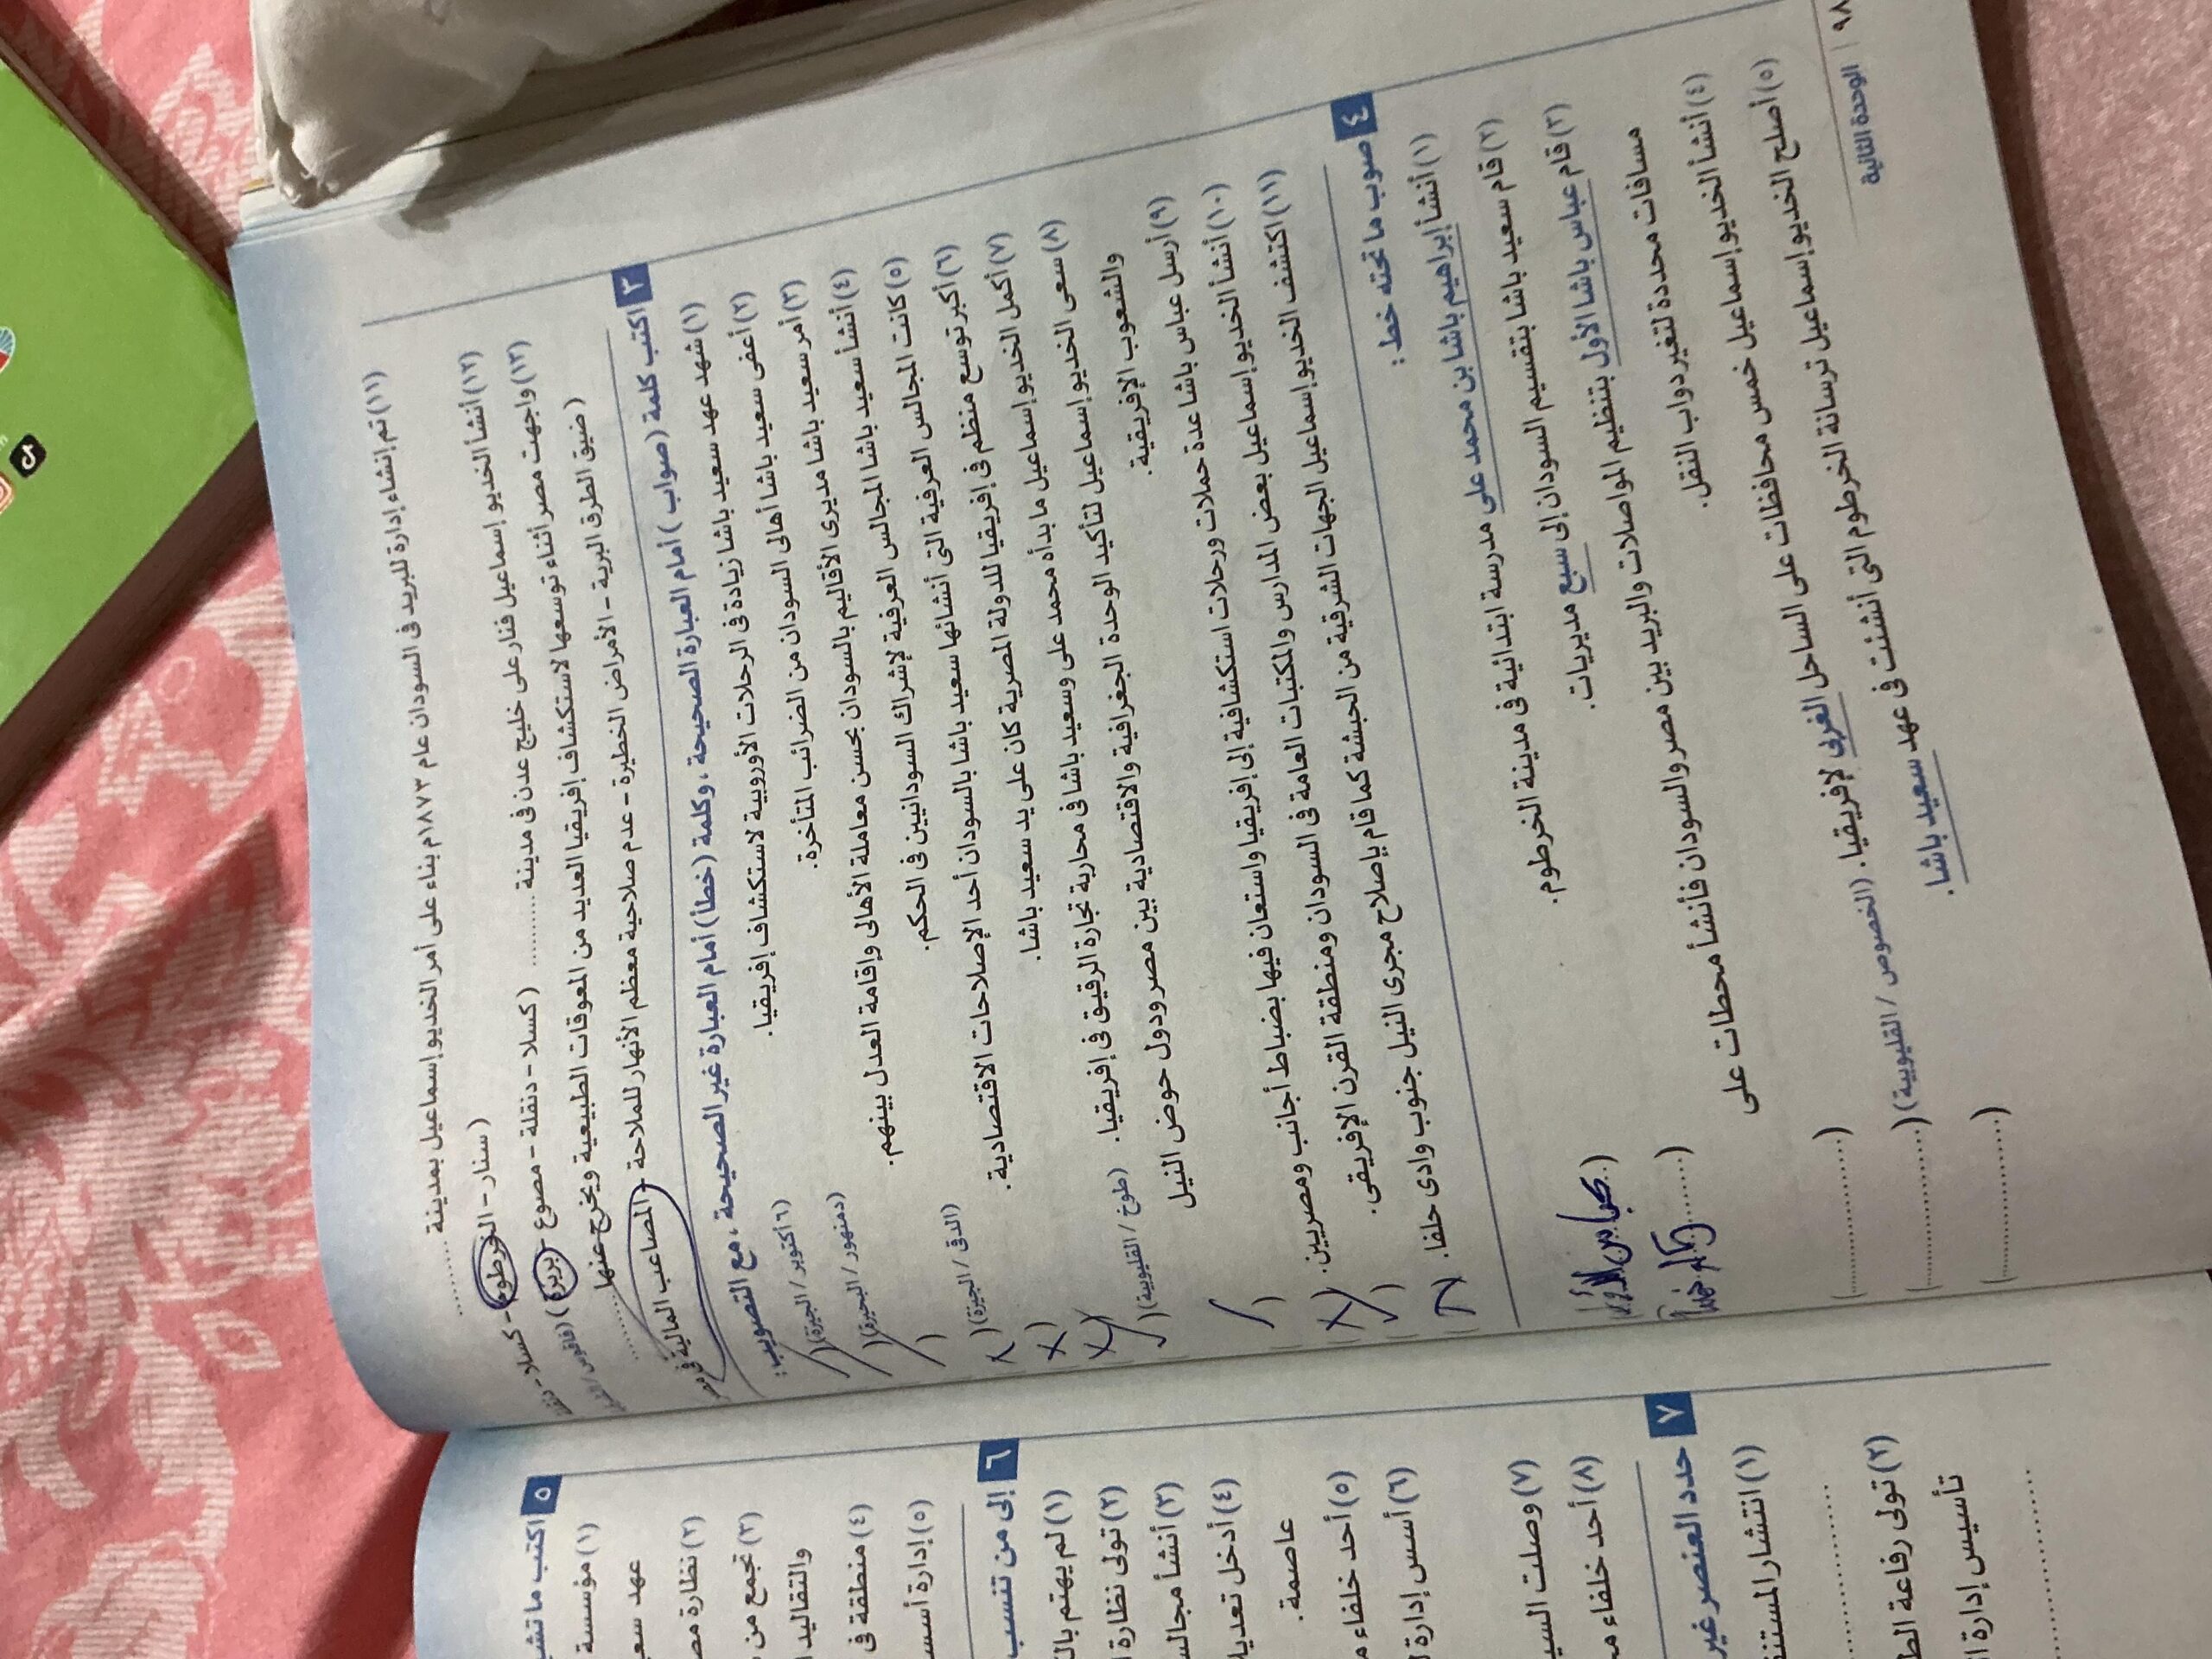 (١١) تم إنشاء إدارة للبريد فى السودان عام ١٨٧٣م بناء على أمر الخديو إسماعيل بمدينة ..........
( سنار - الخرطوم - كسلا -
(١٢) أنشأ الخديو إسماعيل فنار على خليج عدن فى مدينة .......... ( كسلا - دنقلة - مصوع - بربرة )
(١٣) واجهت مصر أثناء توسعها لاستكشاف إفريقيا العديد من المعوقات الطبيعية ويخرج عنها ..........
( ضيق الطرق البرية - الأمراض الخطيرة - عدم صلاحية معظم الأنهار للملاحة - المصاعب المالية فى مصر
٣ اكتب كلمة (صواب) أمام العبارة الصحيحة، وكلمة (خطأ) أمام العبارة غير الصحيحة، مع التصويب :
(١) شهد عهد سعيد باشا زيادة فى الرحلات الأوروبية لاستكشاف إفريقيا. (٦ أكتوبر / الجيزة) ( )
(٢) أعفى سعيد باشا أهالى السودان من الضرائب المتأخرة. (دمنهور / البحيرة) ( )
(٣) أمر سعيد باشا مديرى الأقاليم بالسودان بحسن معاملة الأهالى وإقامة العدل بينهم. ( )
(٤) أنشأ سعيد باشا المجالس العرفية لإشراك السودانيين فى الحكم. (الدقى / الجيزة) ( X )
(٥) كانت المجالس العرفية التى أنشائها سعيد باشا بالسودان أحد الإصلاحات الاقتصادية. ( X )
(٦) أكبر توسع منظم فى إفريقيا للدولة المصرية كان على يد سعيد باشا. ( X )
(٧) أكمل الخديو إسماعيل ما بدأه محمد على وسعيد باشا فى محاربة تجارة الرقيق فى إفريقيا. (طوخ / القليوبية) ( )
(٨) سعى الخديو إسماعيل لتأكيد الوحدة الجغرافية والاقتصادية بين مصر ودول حوض النيل
والشعوب الإفريقية. ( )
(٩) أرسل عباس باشا عدة حملات ورحلات استكشافية إلى إفريقيا واستعان فيها بضباط أجانب ومصريين. ( X )
(١٠) أنشأ الخديو إسماعيل بعض المدارس والمكتبات العامة فى السودان ومنطقة القرن الإفريقى. ( )
(١١) اكتشف الخديو إسماعيل الجهات الشرقية من الحبشة كما قام بإصلاح مجرى النيل جنوب وادى حلفا. ( )
٤ صوب ما تحته خط :
(١) أنشأ إبراهيم باشا بن محمد على مدرسة ابتدائية فى مدينة الخرطوم. ( عباس الأول )
(٢) قام سعيد باشا بتقسيم السودان إلى سبع مديريات. ( )
(٣) قام عباس باشا الأول بتنظيم المواصلات والبريد بين مصر والسودان فأنشأ محطات على
مسافات محددة لتغير دواب النقل. (..........)
(٤) أنشأ الخديو إسماعيل خمس محافظات على الساحل الغربى لإفريقيا. (الخصوص / القليوبية) (..........)
(٥) أصلح الخديو إسماعيل ترسانة الخرطوم التى أنشئت فى عهد سعيد باشا. (..........)
٩٨ | الوحدة الثانية
٥ اكتب ما تشي
(١) مؤسسة
عهد سعي
(٢) نظارة مص
(٣) تجمع من
والتقاليد
(٤) منطقة فى
(٥) إدارة أسس
٦ إلى من تنسب
(١) لم يهتم بال
(٢) تولى نظارة
(٣) أنشأ مجالس
(٤) أدخل تعديلا
عاصمة.
(٥) أحد خلفاء م
(٦) أسس إدارة
(٧) وصلت السي
(٨) أحد خلفاء مح
٧ حدد العنصر غير
(١) انتشار المستنق
(٢) تولى رفاعة الط
تأسيس إدارة ا